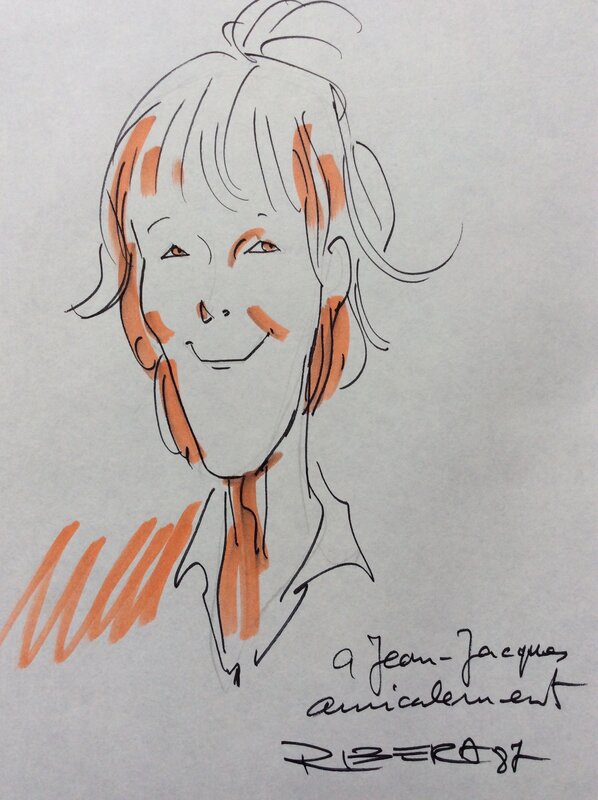 a Jean-Jacques
amicalement
RIBERA 87